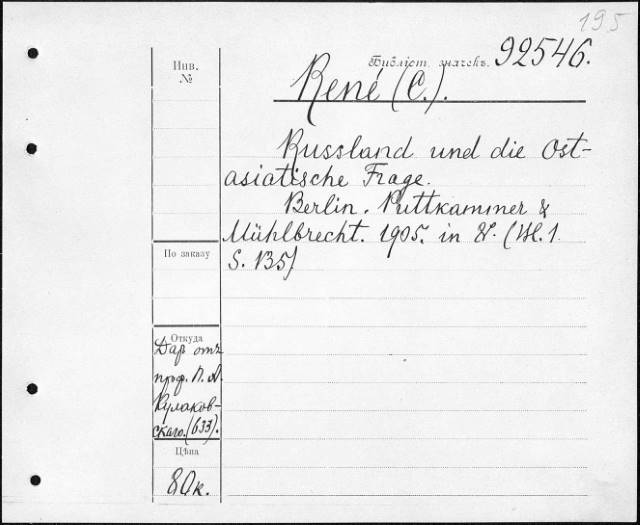 195
Инв.
№
Библіот. значекъ. 92546.
René (C.).
Russland und die Ost-
asiatische Frage.
Berlin. Puttkammer &
Mühlbrecht. 1905. in 8°. (Bl. 1
S. 135)
По заказу
Откуда
Даръ отъ
проф. П. А.
Кулаков-
скаго. (633).
Цѣна
80к.